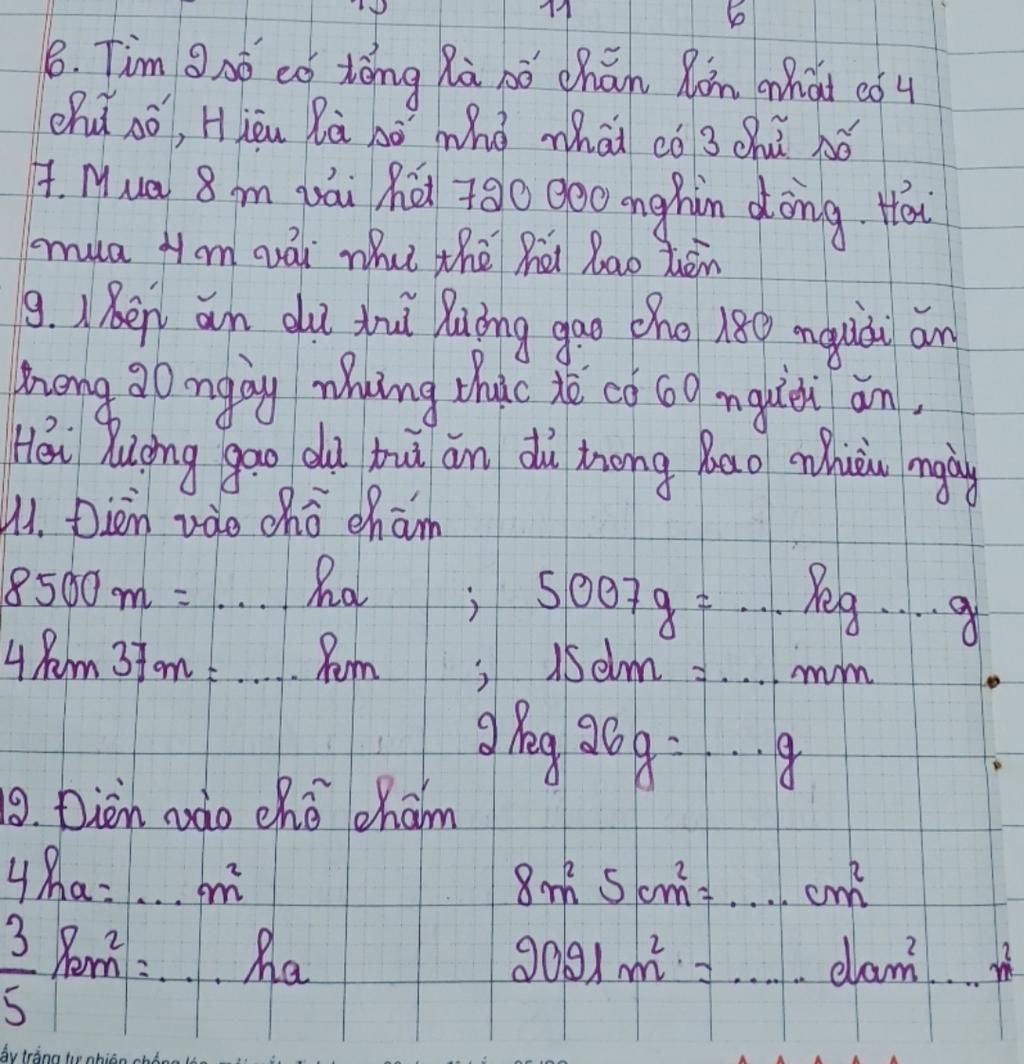 13 11 6
6. Tìm 2 số có tổng là số chẵn lớn nhất có 4
chữ số, Hiệu là số nhỏ nhất có 3 chữ số
7. Mua 8 m vải hết 720 000 nghìn đồng. Hỏi
mua 4 m vải như thế hết bao tiền
9. 1 bếp ăn dự trữ lượng gạo cho 180 người ăn
trong 20 ngày nhưng thực tế có 60 người ăn.
Hỏi lượng gạo dự trữ ăn đủ trong bao nhiêu ngày
11. Điền vào chỗ chấm
8500 m = .... ha ; 5007 g = ... kg .... g
4 km 37 m = ..... km ; 15 dm = .... mm
2 kg 26 g = .... g
12. Điền vào chỗ chấm
4 ha = ... m² 8 m² 5 cm² = .... cm²
3/5 km² = .... ha 2091 m² = ..... dam² .... m²